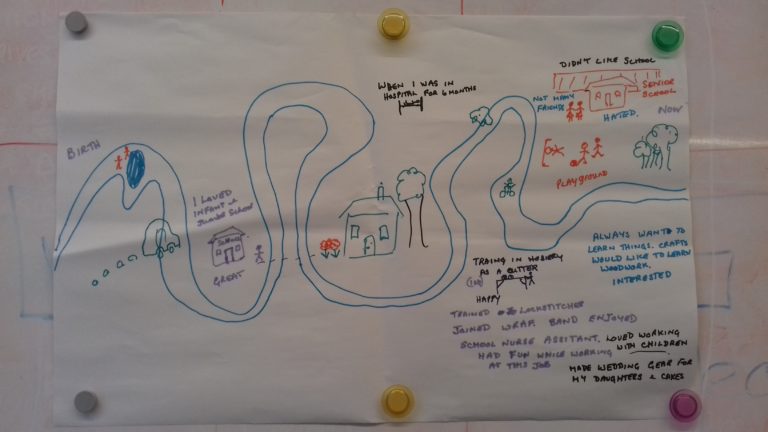 BIRTH
I LOVED
INFANT &
JUNIOR SCHOOL
SCHOOL
GREAT
WHEN I WAS IN
HOSPITAL FOR 6 MONTHS
DIDN'T LIKE SCHOOL
SENIOR
SCHOOL
NOT MANY
FRIENDS
HATED.
NOW
PLAYGROUND
ALWAYS WANT TO
LEARN THINGS. CRAFTS
WOULD LIKE TO LEARN
WOODWORK.
INTERESTED
TRAING IN HOSIERY
AS A CUTTER
HAPPY
TRAINED LOCKSTITCHER
JOINED WRAF. BAND ENJOYED
SCHOOL NURSE ASSISTANT. LOVED WORKING
WITH CHILDREN
HAD FUN WHILE WORKING
AT THIS JOB
MADE WEDDING GEAR FOR
MY DAUGHTERS & CAKES